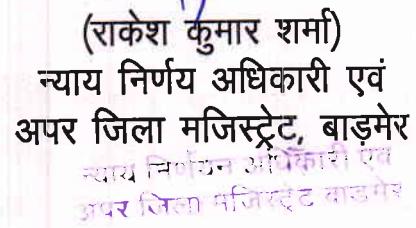 (राकेश कुमार शर्मा)
न्याय निर्णय अधिकारी एवं
अपर जिला मजिस्ट्रेट, बाड़मेर
न्याय निर्णयन अधिकारी एवं
अपर जिला मजिस्ट्रेट बाडमेर